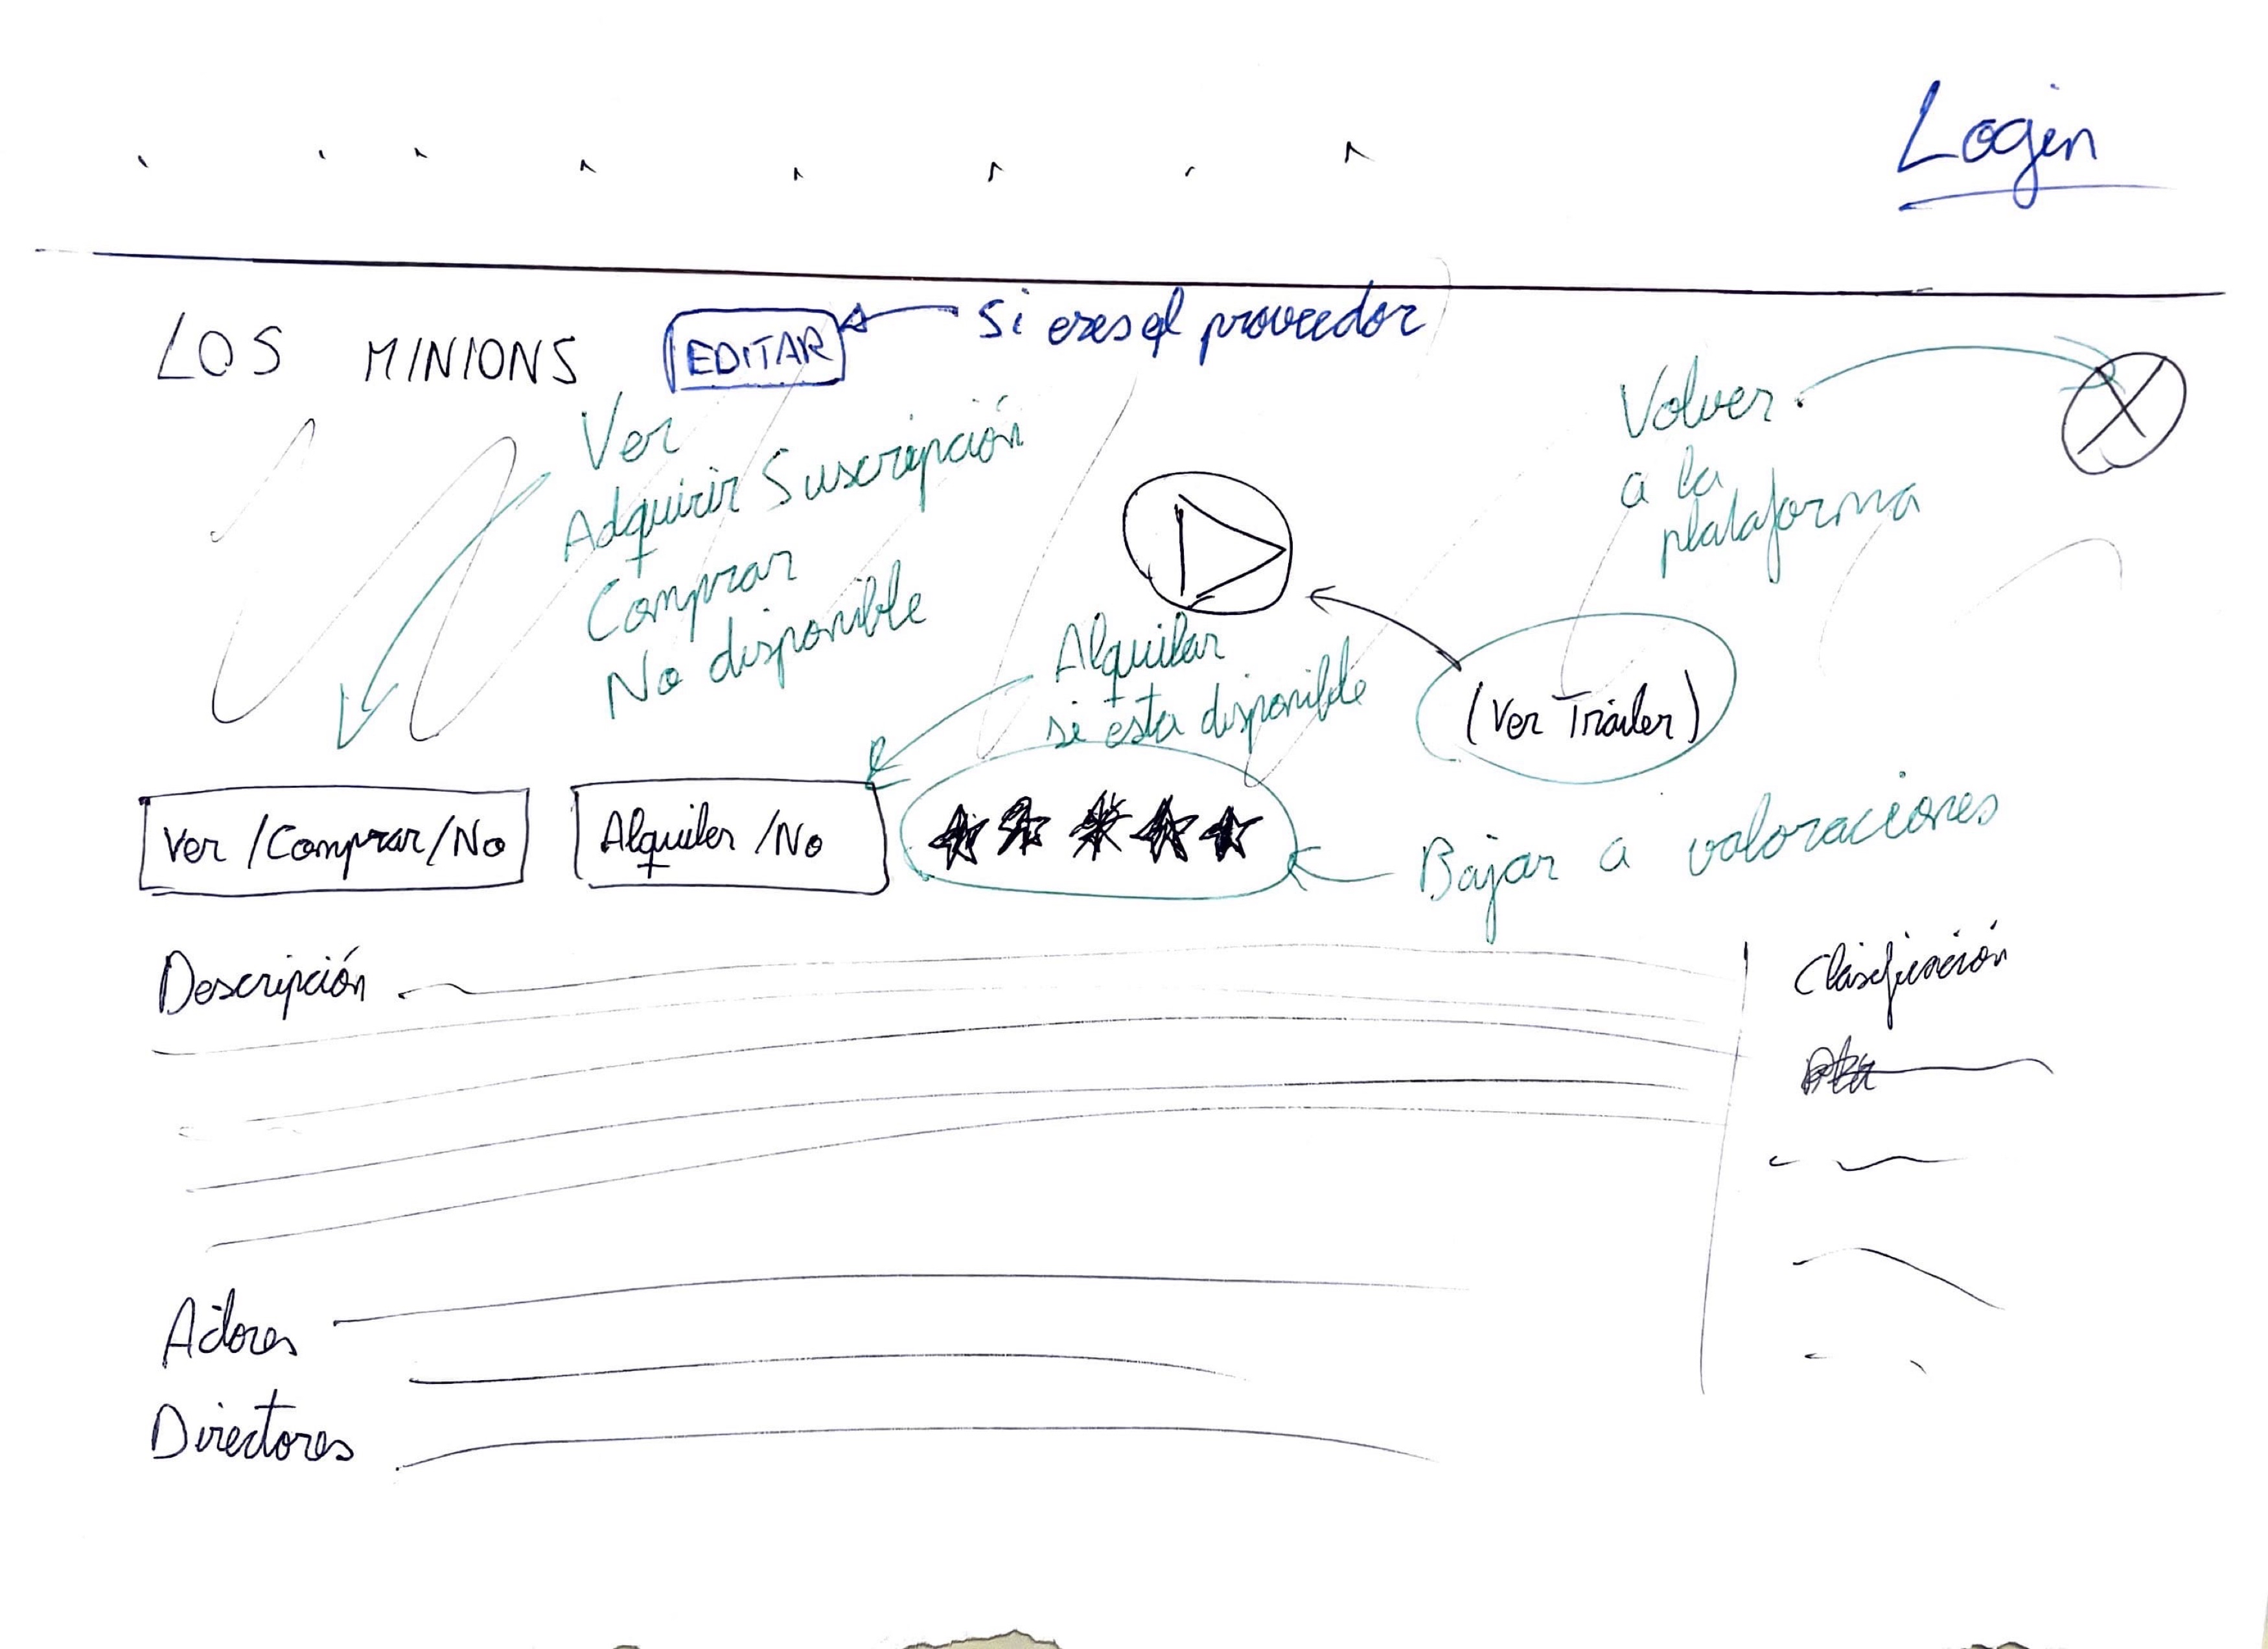 Login
LOS MINIONS
EDITAR
Si eres el proveedor
Ver
Adquirir Suscripción
Comprar
No disponible
Volver
a la
plataforma
Alquilar
si esta disponible
(Ver Tráiler)
Ver /Comprar/No
Alquiler /No
Bajar a valoraciones
Descripción
Clasificación
Actores
Directores